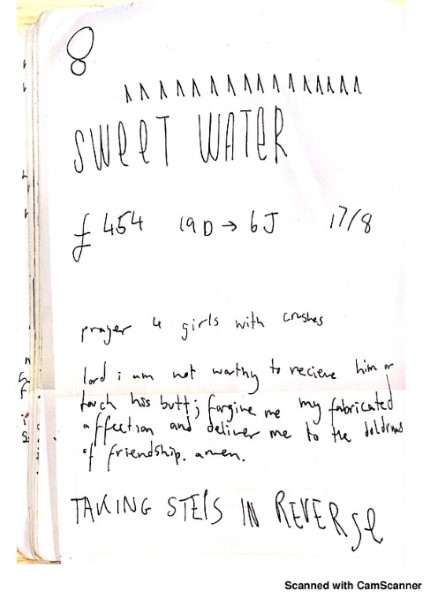 8
ΛΛΛΛΛΛΛΛΛΛΛΛΛΛΛΛ
SWEET WATER
£454 19D → 6J 17/8
prayer 4 girls with crushes
lord i am not worthy to recieve him or
touch his butt; forgive me my fabricated
affection and deliver me to the doldrums
of friendship. amen.
TAKING STEPS IN REVERSE
Scanned with CamScanner